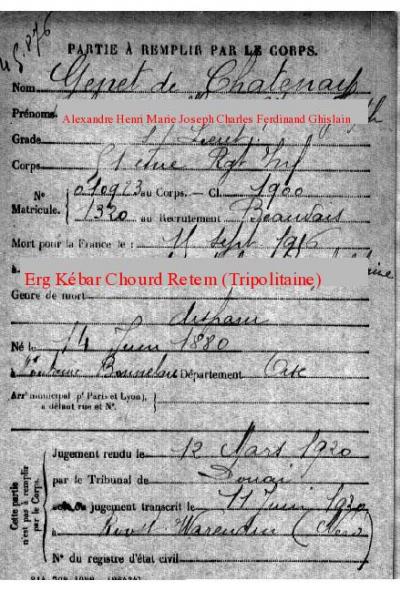 45.876
PARTIE À REMPLIR PAR LE CORPS.
Nom Genet de Chatenay
Prénoms Alexandre Henri Marie Joseph Charles Ferdinand Ghislain
Grade S/ Lieut.
Corps Rgt Inf
N° 010923 au Corps. — Cl. 1900
Matricule. 1320 au Recrutement Beauvais
Mort pour la France le : 11 Sept 1916
à
Erg Kébar Chourd Retem (Tripolitaine)
Genre de mort
disparu
Né le 14 Juin 1880
à Département Oise
Arr municipal p' Paris et Lyon),
à défaut rue et N°.
Cette partie n'est pas à remplir par le Corps.
Jugement rendu le 12 Mars 1920
par le Tribunal de Douai
jugement transcrit le 11 Juin 1920
à Roost Warendin (Nord)
N° du registre d'état civil